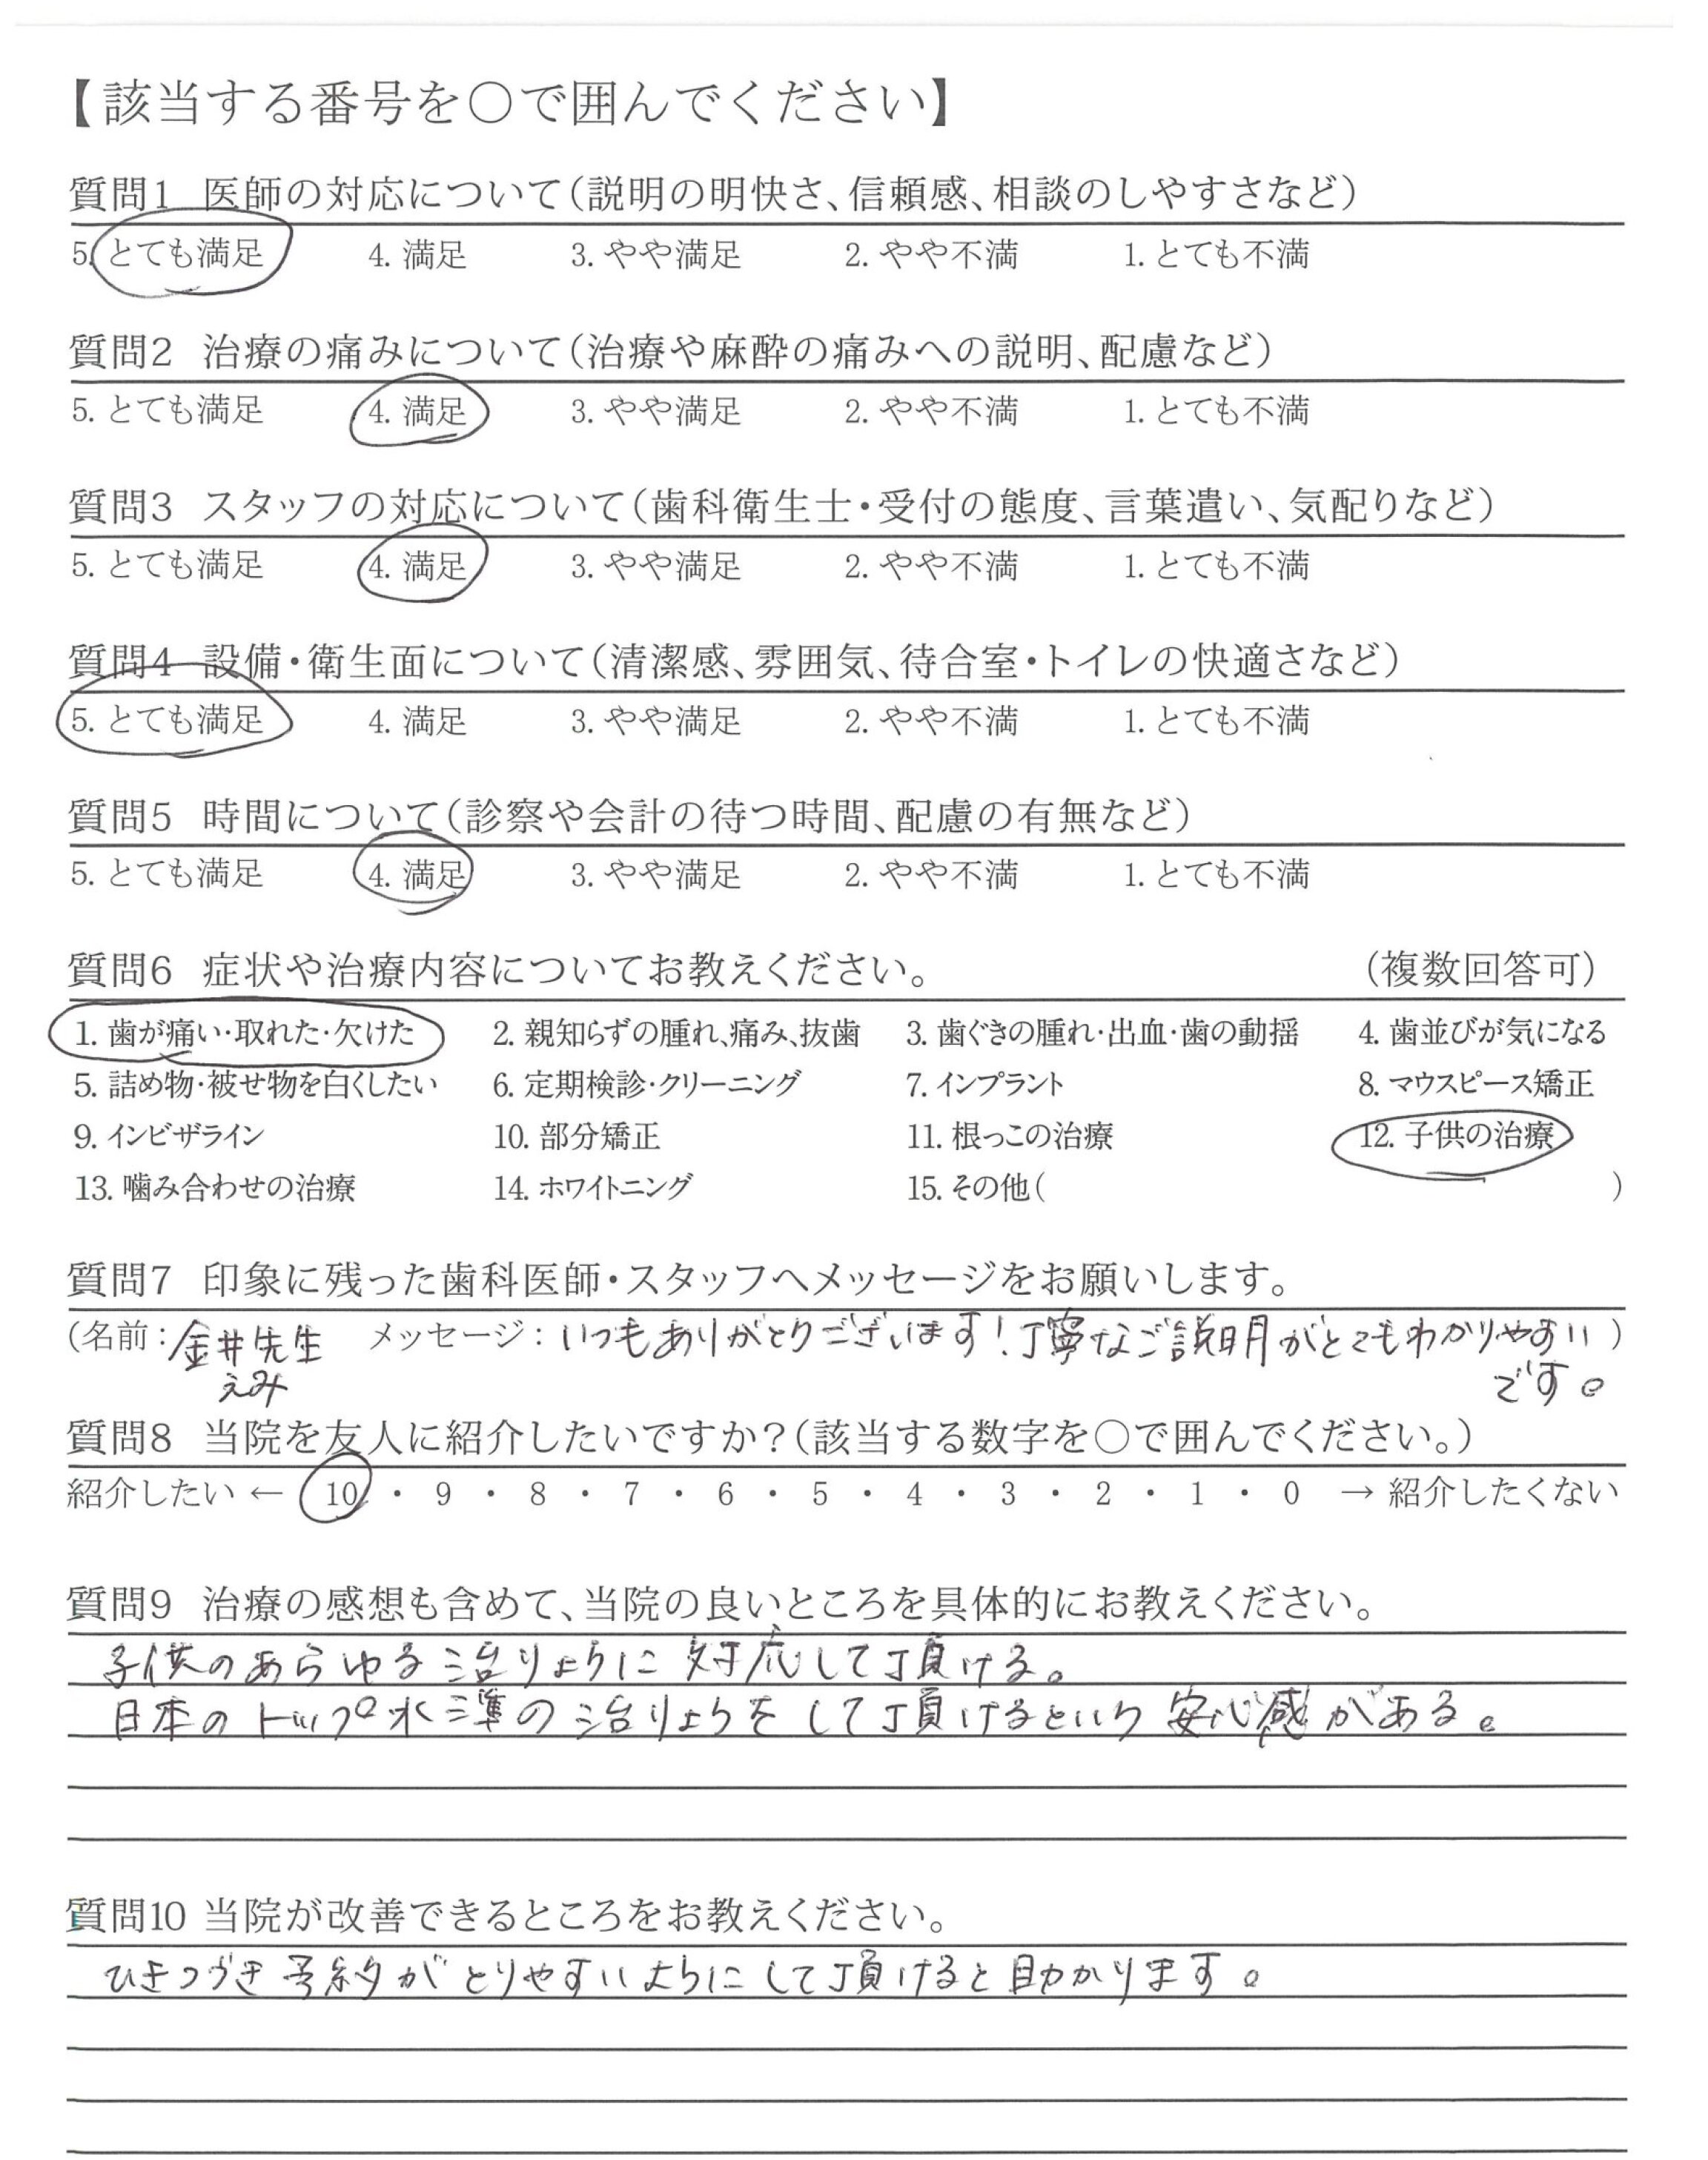 【該当する番号を○で囲んでください】
質問1 医師の対応について(説明の明快さ、信頼感、相談のしやすさなど)
5. とても満足 4. 満足 3. やや満足 2. やや不満 1. とても不満
質問2 治療の痛みについて(治療や麻酔の痛みへの説明、配慮など)
5. とても満足 4. 満足 3. やや満足 2. やや不満 1. とても不満
質問3 スタッフの対応について(歯科衛生士・受付の態度、言葉遣い、気配りなど)
5. とても満足 4. 満足 3. やや満足 2. やや不満 1. とても不満
質問4 設備・衛生面について(清潔感、雰囲気、待合室・トイレの快適さなど)
5. とても満足 4. 満足 3. やや満足 2. やや不満 1. とても不満
質問5 時間について(診察や会計の待つ時間、配慮の有無など)
5. とても満足 4. 満足 3. やや満足 2. やや不満 1. とても不満
質問6 症状や治療内容についてお教えください。 (複数回答可)
1. 歯が痛い・取れた・欠けた 2. 親知らずの腫れ、痛み、抜歯 3. 歯ぐきの腫れ・出血・歯の動揺 4. 歯並びが気になる
5. 詰め物・被せ物を白くしたい 6. 定期検診・クリーニング 7. インプラント 8. マウスピース矯正
9. インビザライン 10. 部分矯正 11. 根っこの治療 12. 子供の治療
13. 噛み合わせの治療 14. ホワイトニング 15. その他( )
質問7 印象に残った歯科医師・スタッフへメッセージをお願いします。
(名前: 金井先生 メッセージ: いつもありがとうございます!丁寧なご説明がとてもわかりやすい)
えみ です。
質問8 当院を友人に紹介したいですか?(該当する数字を○で囲んでください。)
紹介したい ← 10 ・ 9 ・ 8 ・ 7 ・ 6 ・ 5 ・ 4 ・ 3 ・ 2 ・ 1 ・ 0 → 紹介したくない
質問9 治療の感想も含めて、当院の良いところを具体的にお教えください。
子供のあらゆる治りょうに対応して頂ける。
日本のトップ水準の治りょうをして頂けるという安心感がある。
質問10 当院が改善できるところをお教えください。
ひきつづき予約がとりやすいようにして頂けると助かります。